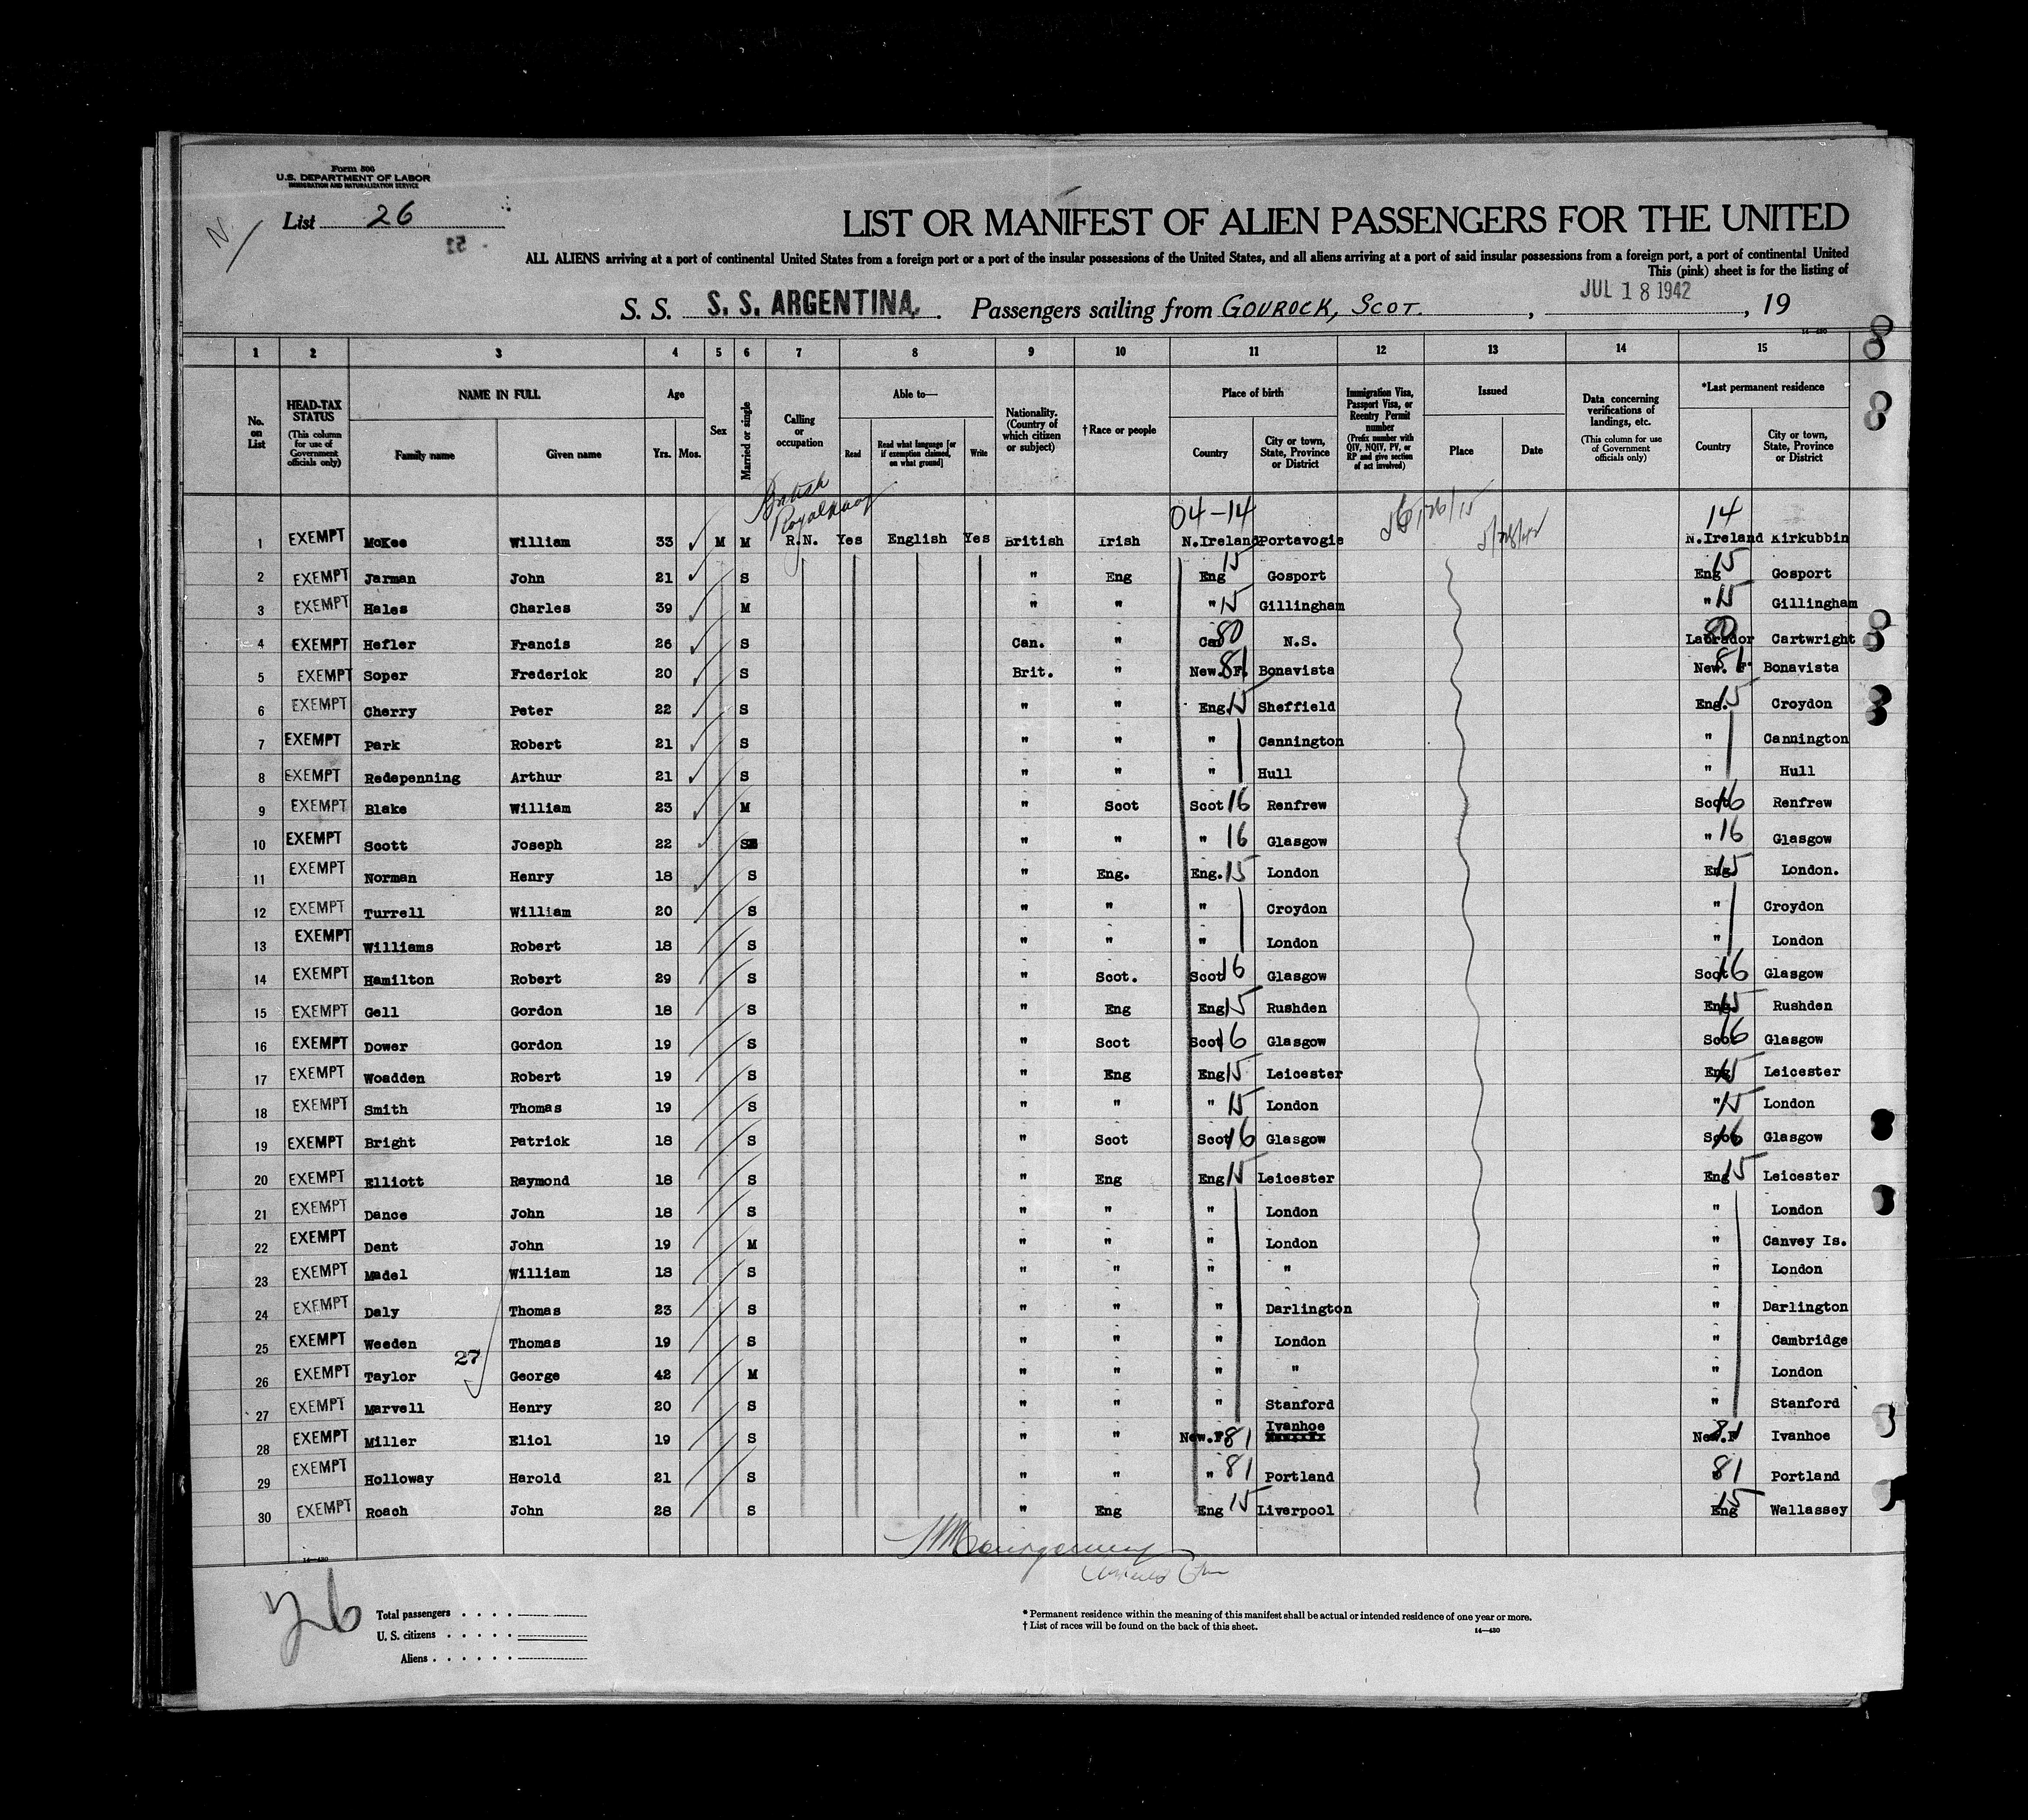 Form 500
U.S. DEPARTMENT OF LABOR
IMMIGRATION AND NATURALIZATION SERVICE
List 26
LIST OR MANIFEST OF ALIEN PASSENGERS FOR THE UNITED
ALL ALIENS arriving at a port of continental United States from a foreign port or a port of the insular possessions of the United States, and all aliens arriving at a port of said insular possessions from a foreign port, a port of continental United
This (pink) sheet is for the listing of
S. S. S. S. ARGENTINA. Passengers sailing from GOUROCK, SCOT. , JUL 18 1942 , 19
14—430
1 2 3 4 5 6 7 8 9 10 11 12 13 14 15
No. on List
HEAD-TAX STATUS (This column for use of Government officials only)
NAME IN FULL
Family name Given name
Age
Yrs. Mos.
Sex
Married or single
Calling or occupation
Able to—
Read Read what language [or if exemption claimed, on what ground] Write
Nationality. (Country of which citizen or subject)
†Race or people
Place of birth
Country City or town, State, Province or District
Immigration Visa, Passport Visa, or Reentry Permit number (Prefix number with QIV, NQIV, PV, or RP and give section of act involved)
Issued
Place Date
Data concerning verifications of landings, etc. (This column for use of Government officials only)
*Last permanent residence
Country City or town, State, Province or District
British
Royal Navy
04-14 14
1 EXEMPT McKee William 33 M M R.N. Yes English Yes British Irish N.Ireland Portavogie N.Ireland Kirkubbin
2 EXEMPT Jarman John 21 S " Eng Eng 15 Gosport Eng 15 Gosport
3 EXEMPT Hales Charles 39 M " " " 15 Gillingham " 15 Gillingham
4 EXEMPT Hefler Francis 26 S Can. " Can 80 N.S. Labrador 80 Cartwright
5 EXEMPT Soper Frederick 20 S Brit. " New. F. 81 Bonavista New. F. 81 Bonavista
6 EXEMPT Cherry Peter 22 S " " Eng. 15 Sheffield Eng. 15 Croydon
7 EXEMPT Park Robert 21 S " " " Cannington " Cannington
8 EXEMPT Redepenning Arthur 21 S " " " Hull " Hull
9 EXEMPT Blake William 23 M " Scot Scot 16 Renfrew Scot 16 Renfrew
10 EXEMPT Scott Joseph 22 S " " " 16 Glasgow " 16 Glasgow
11 EXEMPT Norman Henry 18 S " Eng. Eng. 15 London Eng 15 London.
12 EXEMPT Turrell William 20 S " " " Croydon " Croydon
13 EXEMPT Williams Robert 18 S " " " London " London
14 EXEMPT Hamilton Robert 29 S " Scot. Scot 16 Glasgow Scot 16 Glasgow
15 EXEMPT Gell Gordon 18 S " Eng Eng 15 Rushden Eng. 15 Rushden
16 EXEMPT Dower Gordon 19 S " Scot Scot 16 Glasgow Scot 16 Glasgow
17 EXEMPT Woadden Robert 19 S " Eng Eng 15 Leicester Eng 15 Leicester
18 EXEMPT Smith Thomas 19 S " " " 15 London " 15 London
19 EXEMPT Bright Patrick 18 S " Scot Scot 16 Glasgow Scot 16 Glasgow
20 EXEMPT Elliott Raymond 18 S " Eng Eng 15 Leicester Eng 15 Leicester
21 EXEMPT Dance John 18 S " " " London " London
22 EXEMPT Dent John 19 M " " " London " Canvey Is.
23 EXEMPT Madel William 18 S " " " " " London
24 EXEMPT Daly Thomas 23 S " " " Darlington " Darlington
25 EXEMPT Weeden Thomas 19 S " " " London " Cambridge
27
26 EXEMPT Taylor George 42 M " " " " " London
27 EXEMPT Marvell Henry 20 S " " " Stanford " Stanford
28 EXEMPT Miller Eliol 19 S " " New.F 81 Ivanhoe New.F 81 Ivanhoe
29 EXEMPT Holloway Harold 21 S " " " 81 Portland " 81 Portland
30 EXEMPT Roach John 28 S " Eng Eng 15 Liverpool Eng 15 Wallassey
14—430
26
Total passengers . . . .
U. S. citizens . . . . .
Aliens . . . . . .
* Permanent residence within the meaning of this manifest shall be actual or intended residence of one year or more.
† List of races will be found on the back of this sheet.
14—430